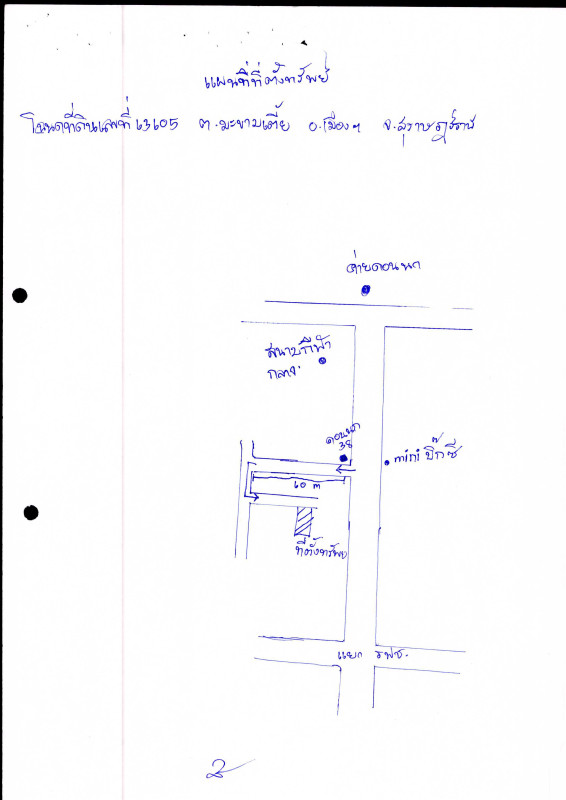 แผนที่ที่ตั้งทรัพย์
โฉนดที่ดินเลขที่ 63605 ต.มะขามเตี้ย อ.เมืองฯ จ.สุราษฎร์ธานี
ค่ายดอนนก
สนามกีฬา
กลาง
ดอนนก
38
mini บิ๊กซี
60 m
ที่ตั้งทรัพย์
แยก รพช.
2